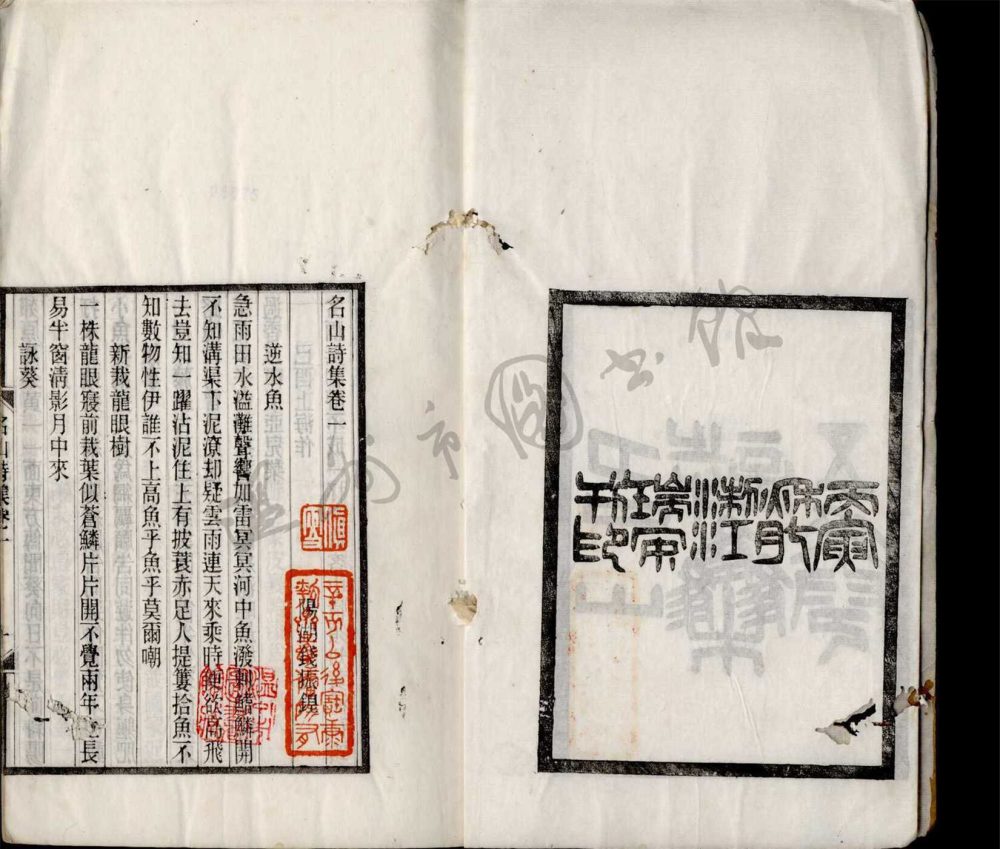 丙寅
浙江
瑞安
印
名山詩集卷一
陽湖錢振鍠
逆水魚
急雨田水溢灘聲響如雷冥冥河中魚潑剌鰭鱗開
不知溝渠下泥潦却疑雲雨連天來乘時便欲高飛
去豈知躍沾泥住上有披蓑赤足人提簍拾魚不
知數物性伊誰不上高魚乎魚乎莫爾嘲
新栽龍眼樹
一株龍眼寢前栽葉似蒼鱗片片開不覺兩年長
易半窗清影月中來
詠葵
名山詩集卷一
溫州市圖書館